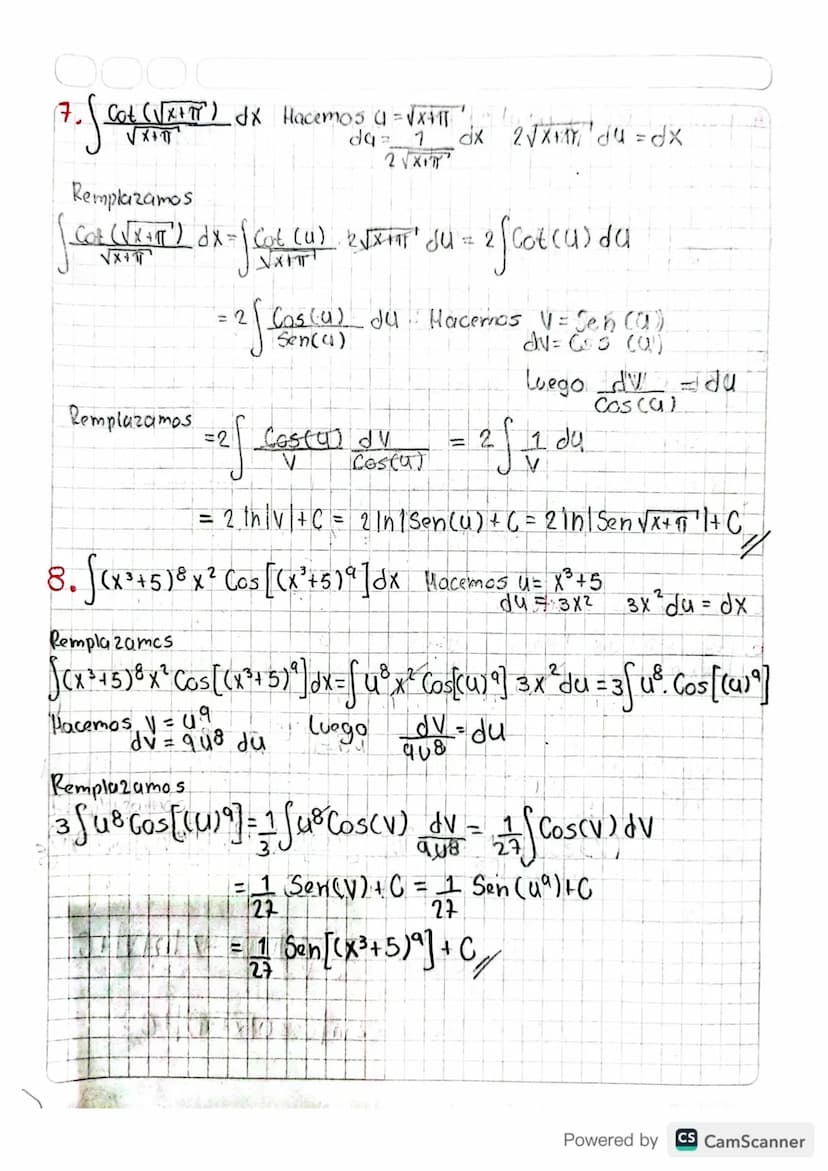 7. ∫ Cot(√x+π) / √x+π dx Hacemos u = √x+π
du = 1 / 2√x+π dx 2√x+π du = dx
Remplazamos
∫ Cot(√x+π) / √x+π dx = ∫ Cot(u) / √x+π · 2√x+π du = 2∫Cot(u) du
= 2∫ Cos(u) / Sen(u) du Hacemos V = Sen(u)
dV = Cos(u)
Luego dV / Cos(u) = du
Remplazamos
= 2∫ Cos(u) / V dV / Cos(u) = 2∫ 1/V du
= 2 ln|V| + C = 2 ln|Sen(u) + C = 2 ln|Sen√x+π| + C //
8. ∫(x³+5)⁸ x² Cos[(x³+5)⁹]dx Hacemos u = x³+5
du = 3x² 3x² du = dx
Remplazamos
∫(x³+5)⁸ x² Cos[(x³+5)⁹]dx = ∫ u⁸ x² Cos[(u)⁹] 3x² du = 3∫ u⁸. Cos[(u)⁹]
Hacemos V = u⁹ Luego dV / 9u⁸ = du
dV = 9u⁸ du
Remplazamos
3∫u⁸ Cos[(u)⁹] = 1/3 ∫u⁸ Cos(V) dV / 9u⁸ = 1/27 ∫Cos(V) dV
= 1/27 Sen(V) + C = 1/27 Sen(u⁹) + C
= 1/27 Sen[(x³+5)⁹] + C //
Powered by CS CamScanner